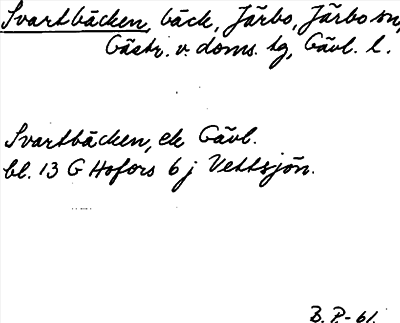 Svartbäcken, bäck, Järbo, Järbo sn,
Gästr. v. doms. tg, Gävl. l.
Svartbäcken, ek Gävl.
bl. 13 G Hofors 6 j Vettsjön.
B. P. - 61.